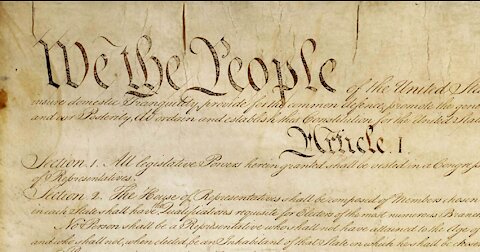 We the People of the United Sta
insure domestic Tranquility, provide for the common defence, promote the gene
and our Posterity, do ordain and establish this Constitution for the United Stat
Article. I.
Section. 1. All legislative Powers herein granted shall be vested in a Congress
of Representatives.
Section. 2. The House of Representatives shall be composed of Members chosen
in each State shall have the Qualifications requisite for Electors of the most numerous Branch
No Person shall be a Representative who shall not have attained to the Age of
and who shall not, when elected, be an Inhabitant of that State in which he shall be chosen